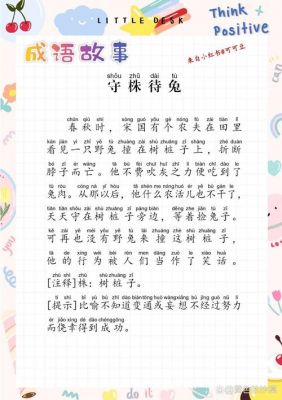 LITTLE DESK
Think +
Positive
成语故事
来自小红书@可可豆
shǒu zhū dài tù
守株待兔
chūn qiū shí sòng guó yǒu gè nóng fū zài tián lǐ
春秋时，宋国有个农夫在田里
kàn jiàn yī zhī yě tù zhuàng zài shù zhuāng zǐ shàng shé duàn
看见一只野兔撞在树桩子上，折断
bó zǐ ér wáng tā bú fèi chuī huī zhī lì biàn chī dào le
脖子而亡。他不费吹灰之力便吃到了
tù ròu cóng nà yǐ hòu tā shén me nóng huó ér yě bú gàn le
兔肉。从那以后，他什么农活儿也不干了，
tiān tiān shǒu zài shù zhuāng zǐ páng biān děng zhe jiǎn tù zǐ
天天守在树桩子旁边，等着捡兔子。
kě zài yě méi yǒu yě tù lái zhuàng zhè shù zhuāng zǐ
可再也没有野兔来撞这树桩子，
tā de xíng wéi bèi rén men dāng zuò le xiào huà
他的行为被人们当作了笑话。
zhù shì zhū shù zhuāng zǐ
[注释]株：树桩子。
tí shì bǐ yù bù zhī dào biàn tōng huò wàng xiǎng bù jīng guò nǔ lì
[提示]比喻不知道变通或妄想不经过努力
ér jiǎo xìng dé dào chéng gōng
而侥幸得到成功。
do it